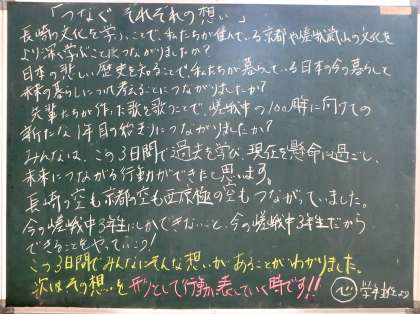 「つなぐ それぞれの想い」
長崎の文化を学ぶことで、私たちが住んでいる京都や嵯峨嵐山の文化を
より深く学ぶことにつながりましたか？
日本の悲しい歴史を知ることで、私たちが暮らしている日本の今の暮らしで
未来の暮らしについて考えることにつながりましたか？
先輩たちが作った歌を歌うことで、嵯峨中の100周年に向けての
新たな1年目の始まりにつながりましたか？
みんなは、この3日間で過去を学び、現在を懸命に過ごし、
未来につながる行動ができたと思います。
長崎の空も京都の空も西京極の空もつながっていました。
今の嵯峨中3年生にしかできないこと、今の嵯峨中3年生だから
できることをやっていこう！
この3日間でみんなにそんな想いがあることがわかりました。
次はその想いを形として行動に表していく時です!!!
学年主任より